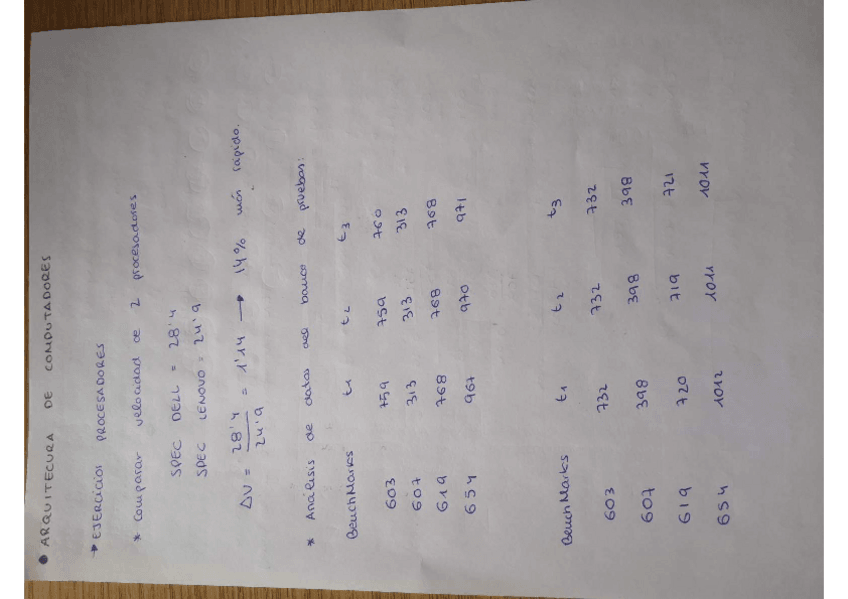 ● ARQUITECURA DE COMPUTADORES
→ EJERCICIOS PROCESADORES
* Comparar velocidad de 2 procesadores
SPEC DELL = 28'4
SPEC LENOVO = 24'9
ΔV = 28'4 / 24'9 = 1'14 → 14% más rápido.
* Análisis de datos del banco de pruebas:
BenchMarks t1 t2 t3
603 759 759 760
607 313 313 313
619 768 768 768
654 967 970 971
BenchMarks t1 t2 t3
603 732 732 732
607 398 398 398
619 720 719 721
654 1012 1011 1011